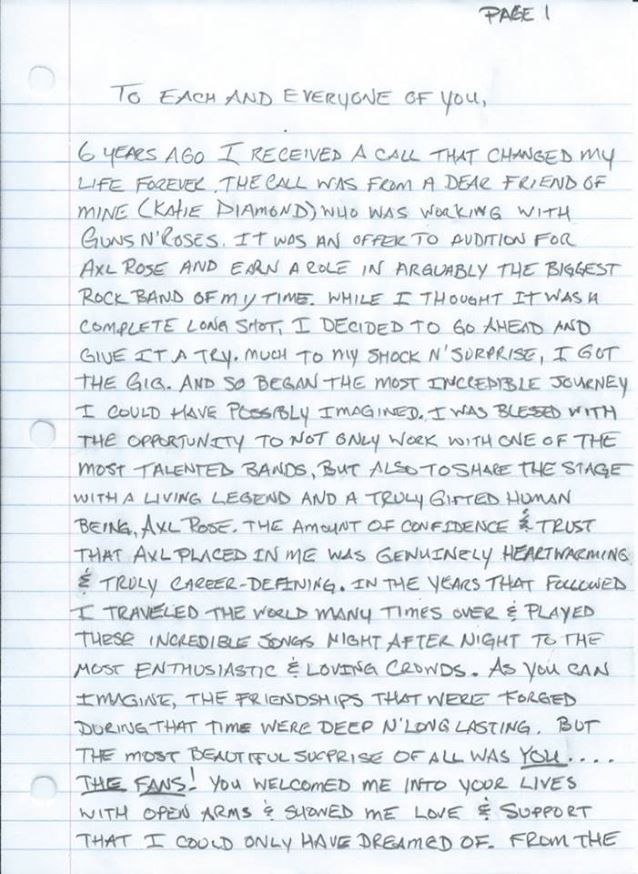 PAGE 1
TO EACH AND EVERYONE OF YOU,
6 YEARS AGO I RECEIVED A CALL THAT CHANGED MY
LIFE FOREVER. THE CALL WAS FROM A DEAR FRIEND OF
MINE (KATIE DIAMOND) WHO WAS WORKING WITH
GUNS N' ROSES. IT WAS AN OFFER TO AUDITION FOR
AXL ROSE AND EARN A ROLE IN ARGUABLY THE BIGGEST
ROCK BAND OF MY TIME. WHILE I THOUGHT IT WAS A
COMPLETE LONG SHOT, I DECIDED TO GO AHEAD AND
GIVE IT A TRY. MUCH TO MY SHOCK N' SURPRISE, I GOT
THE GIG. AND SO BEGAN THE MOST INCREDIBLE JOURNEY
I COULD HAVE POSSIBLY IMAGINED. I WAS BLESSED WITH
THE OPPORTUNITY TO NOT ONLY WORK WITH ONE OF THE
MOST TALENTED BANDS, BUT ALSO TO SHARE THE STAGE
WITH A LIVING LEGEND AND A TRULY GIFTED HUMAN
BEING, AXL ROSE. THE AMOUNT OF CONFIDENCE & TRUST
THAT AXL PLACED IN ME WAS GENUINELY HEARTWARMING
& TRULY CAREER-DEFINING. IN THE YEARS THAT FOLLOWED
I TRAVELED THE WORLD MANY TIMES OVER & PLAYED
THESE INCREDIBLE SONGS NIGHT AFTER NIGHT TO THE
MOST ENTHUSIASTIC & LOVING CROWDS. AS YOU CAN
IMAGINE, THE FRIENDSHIPS THAT WERE FORGED
DURING THAT TIME WERE DEEP N' LONG LASTING. BUT
THE MOST BEAUTIFUL SURPRISE OF ALL WAS YOU....
THE FANS! YOU WELCOMED ME INTO YOUR LIVES
WITH OPEN ARMS & SHOWED ME LOVE & SUPPORT
THAT I COULD ONLY HAVE DREAMED OF. FROM THE